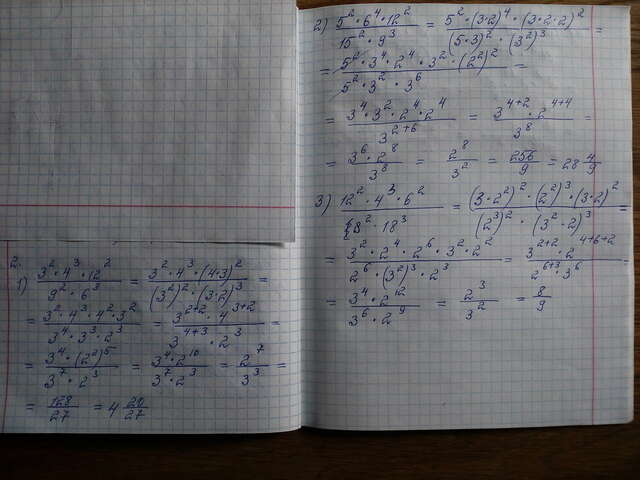 2.
1) (3² · 4³ · 12²)/(9² · 6³) = (3² · 4³ · (4·3)²)/((3²)² · (3·2)³) =
= (3² · 4³ · 4² · 3²)/(3⁴ · 3³ · 2³) = (3²⁺² · 4³⁺²)/(3⁴⁺³ · 2³) =
= (3⁴ · (2²)⁵)/(3⁷ · 2³) = (3⁴ · 2¹⁰)/(3⁷ · 2³) = 2⁷/3³ =
= 128/27 = 4 20/27
2) (5² · 6⁴ · 12²)/(15² · 9³) = (5² · (3·2)⁴ · (3·2·2)²)/((5·3)² · (3²)³) =
= (5² · 3⁴ · 2⁴ · 3² · (2²)²)/(5² · 3² · 3⁶) =
= (3⁴ · 3² · 2⁴ · 2⁴)/3²⁺⁶ = (3⁴⁺² · 2⁴⁺⁴)/3⁸ =
= (3⁶ · 2⁸)/3⁸ = 2⁸/3² = 256/9 = 28 4/9
3) (12² · 4³ · 6²)/(8² · 18³) = ((3·2²)² · (2²)³ · (3·2)²)/((2³)² · (3²·2)³) =
= (3² · 2⁴ · 2⁶ · 3² · 2²)/(2⁶ · (3²)³ · 2³) = (3²⁺² · 2⁴⁺⁶⁺²)/(2⁶⁺³ · 3⁶) =
= (3⁴ · 2¹²)/(3⁶ · 2⁹) = 2³/3² = 8/9